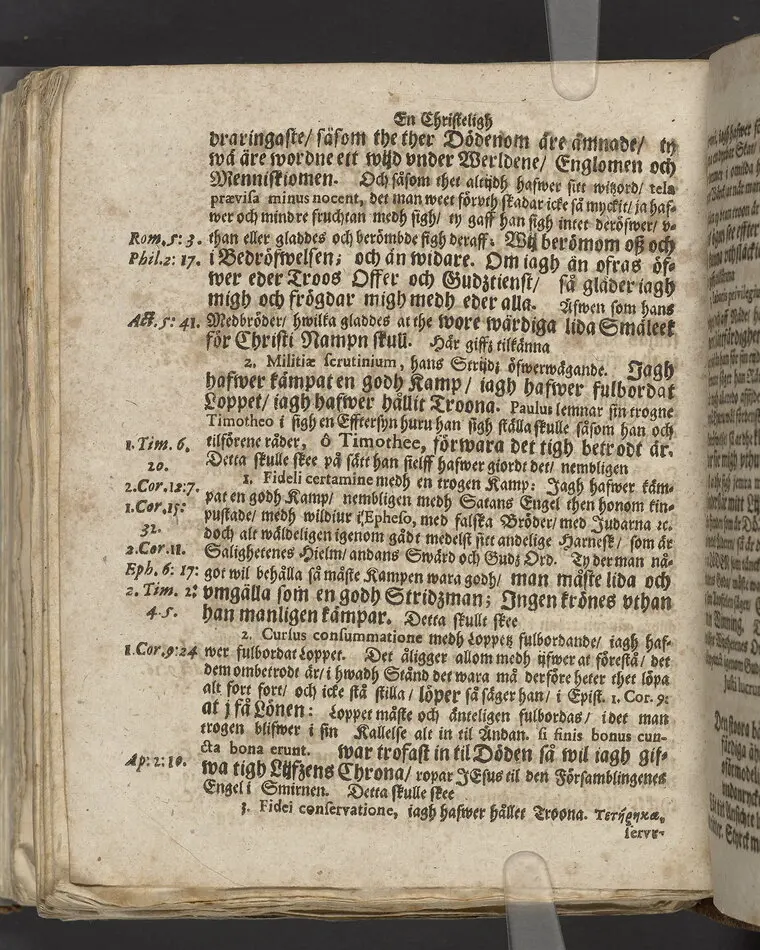 En Christeligh
draringaste/ såsom the ther Dödenom äre ämnade/ ty
wä äre wordne ett wijd vnder Werldene/ Englomen och
Menniskiomen. Och såsom thet altijdh hafwer sitt witzord/ tela
prævisa minus nocent, det man weet förvth skadar icke så myckit/ ja haf-
wer och mindre fruchtan medh sigh/ ty gaff han sigh intet deröfwer/ v-
Rom. 5: 3. than eller gladdes och berömbde sigh deraff: Wij berömom oß och
Phil. 2: 17. i Bedröfwelsen; och än widare. Om iagh än ofras öf-
wer eder Troos Offer och Gudztienst/ så gläder iagh
migh och frögdar migh medh eder alla. Äfwen som hans
Act. 5: 41. Medbröder/ hwilka gladdes at the wore wärdiga lida Smäleek
för Christi Nampn skull. Här giffz tilkänna
2. Militiæ scrutinium, hans Strijdz öfwerwägande. Jagh
hafwer kämpat en godh Kamp/ iagh hafwer fulbordat
Loppet/ iagh hafwer hållit Troona. Paulus lemnar sin trogne
Timotheo i sigh en Efftersyn huru han sigh ställa skulle såsom han och
1. Tim. 6. tilförene råder, ô Timothee, förwara det tigh betrodt är.
20. Detta skulle skee på sätt han sielff hafwer giordt det/ nembligen
1. Fideli certamine medh en trogen Kamp: Jagh hafwer käm-
2. Cor. 12: 7. pat en godh Kamp/ nembligen medh Satans Engel then honom kin-
1. Cor. 15: pustade/ medh wildiur i Epheso, med falska Bröder/ med Judarna ꝛc.
32. doch alt wäldeligen igenom gådt medelst sitt andelige Harnesk/ som är
2. Cor. 11. Salighetenes Hielm/ andans Swärd och Gudz Ord. Ty der man nå-
Eph. 6: 17: got wil behålla så måste Kampen wara godh/ man måste lida och
2. Tim. 2: vmgälla som en godh Stridzman; Jngen krönes vthan
4. 5. han manligen kämpar. Detta skulle skee
2. Cursus consummatione medh Loppetz fulbordande/ iagh haf-
1. Cor. 9: 24 wer fulbordat Loppet. Det åligger allom medh ijfwer at förestå/ det
dem ombetrodt är/ i hwadh Stånd det wara må derföre heter thet löpa
alt fort fort/ och icke stå stilla/ löper så säger han/ i Epist. 1. Cor. 9:
at j få Lönen: Loppet måste och änteligen fulbordas/ i det man
trogen blifwer i sin Kallelse alt in til Ändan. si finis bonus cun-
cta bona erunt. war trofast in til Döden så wil iagh gif-
Ap: 2: 10. wa tigh Lijfzens Chrona/ ropar JEsus til den Församblingenes
Engel i Smirnen. Detta skulle skee
3. Fidei conservatione, iagh hafwer hållet Troona. Τετήρηκα,
serva-